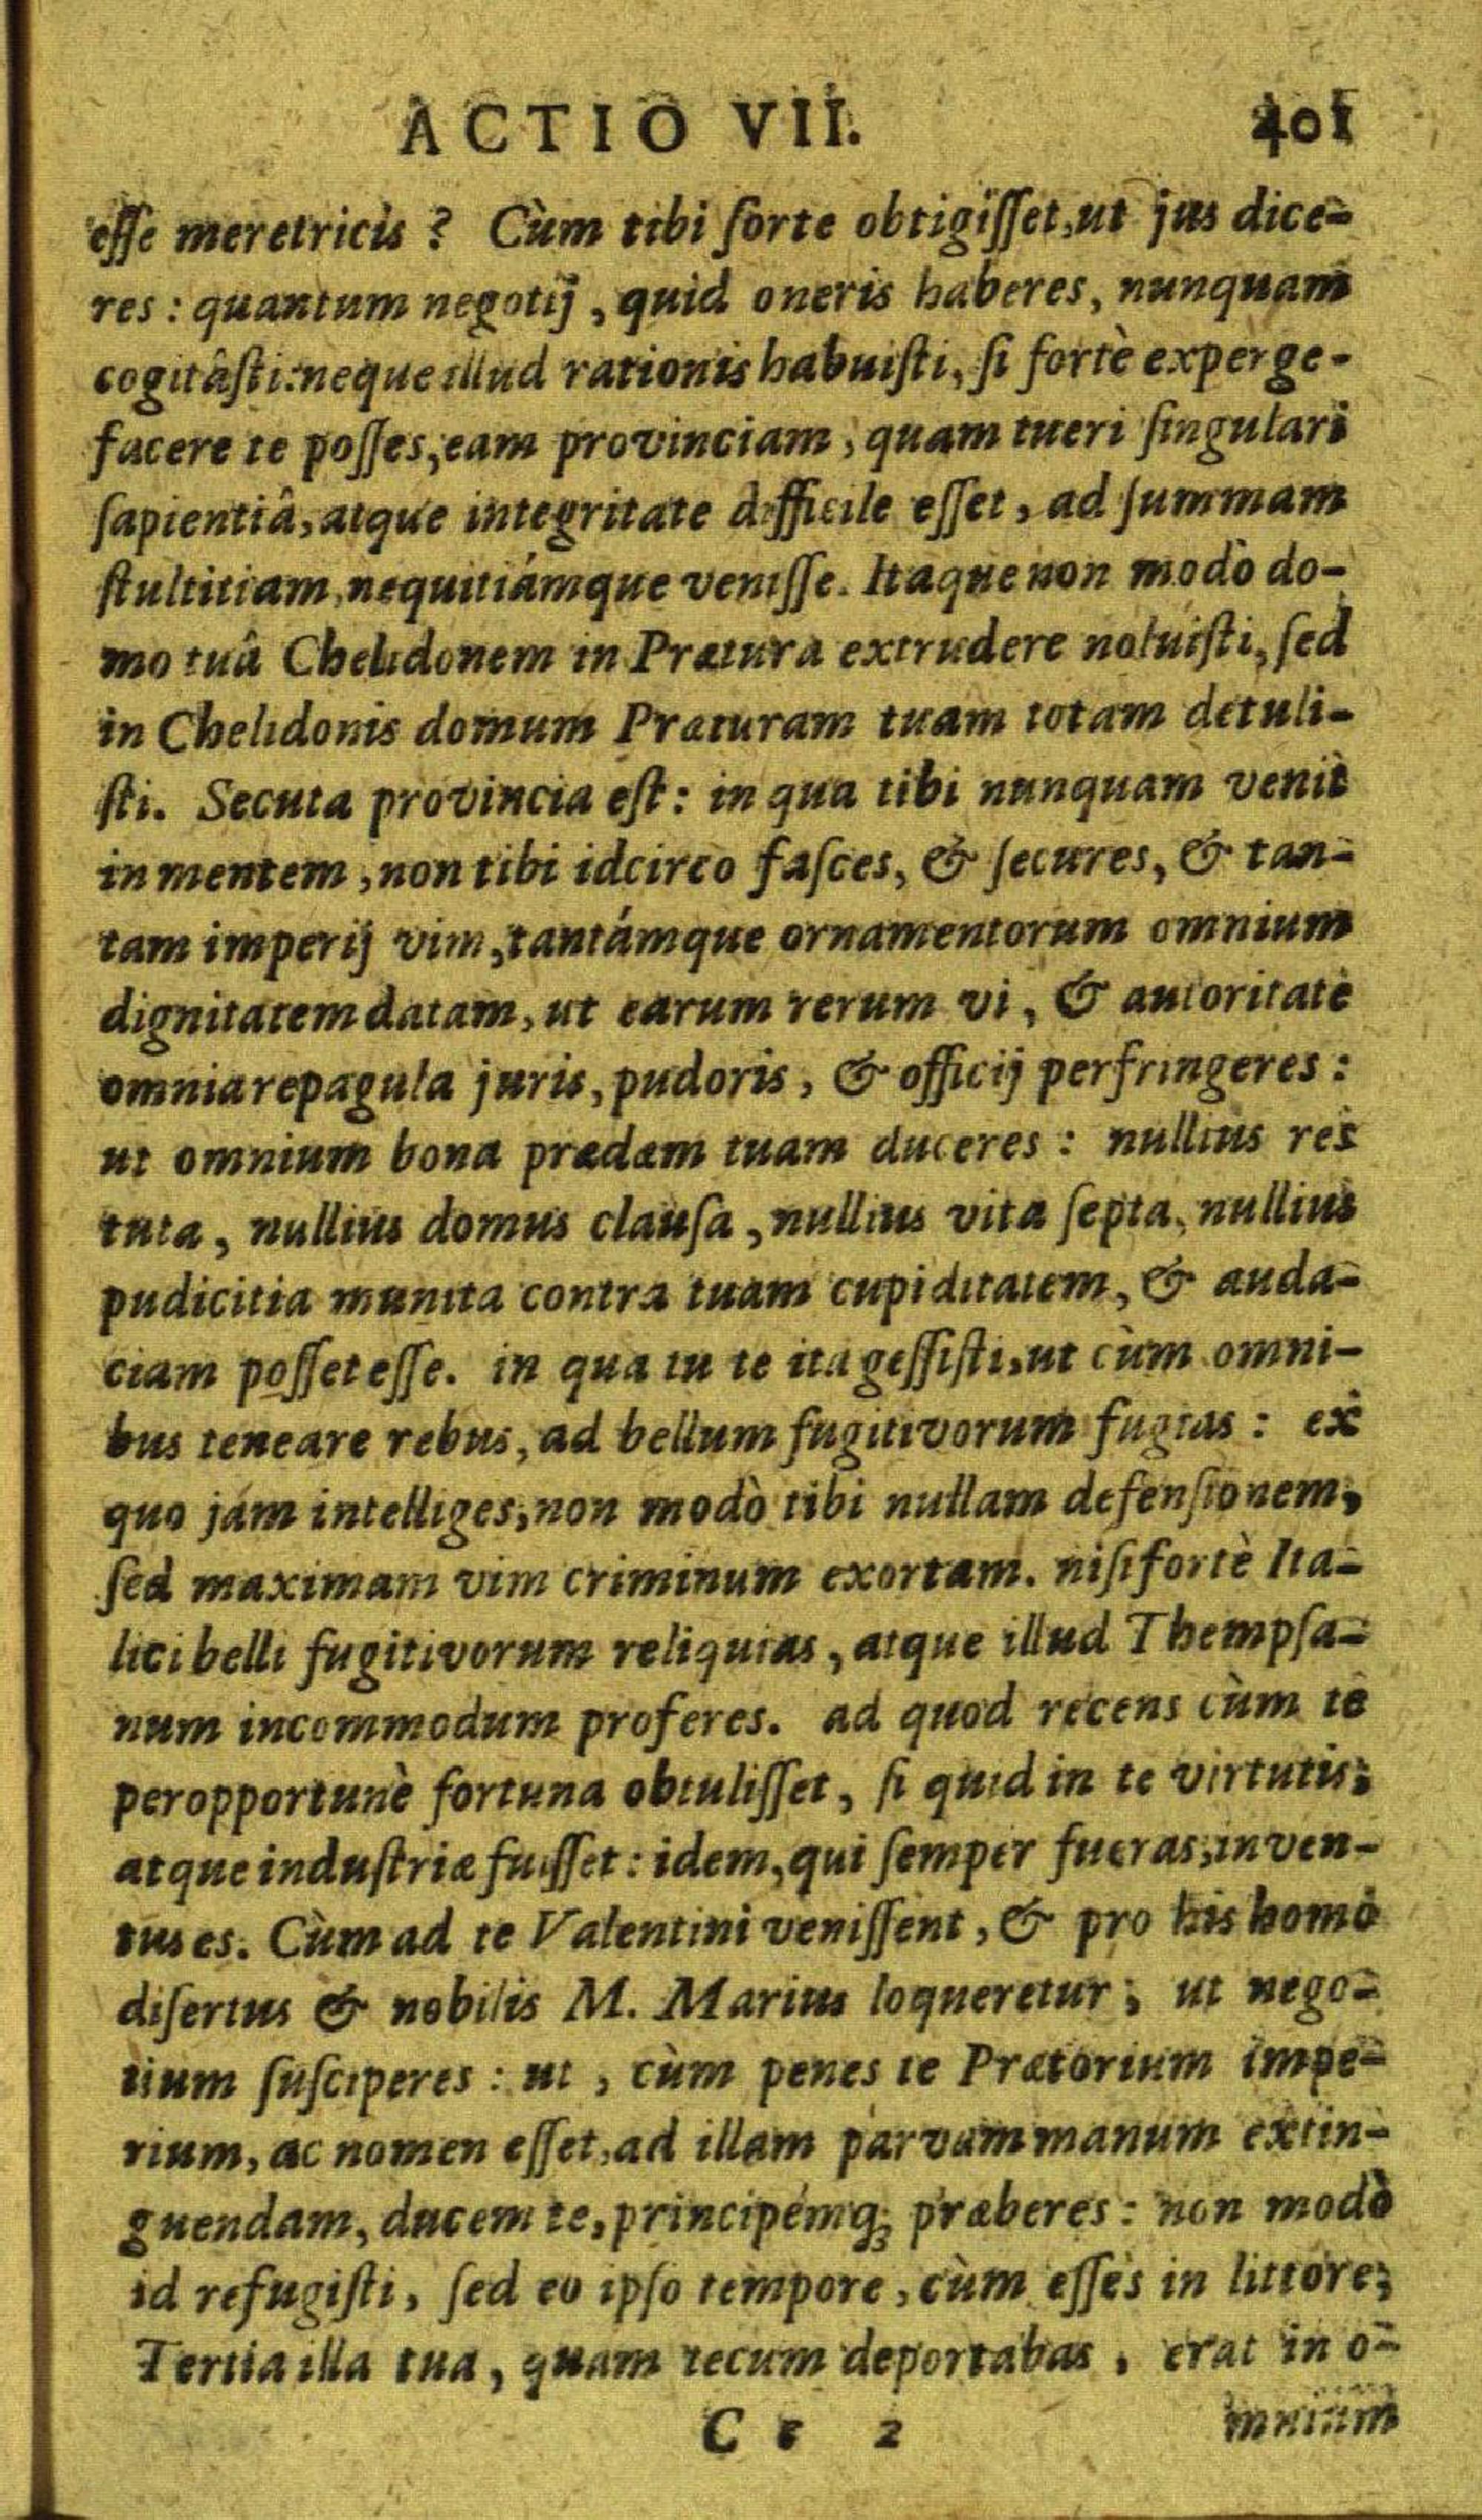 ACTIO VII. 401
esse meretricis ? Cùm tibi sorte obtigisset, ut jus dice-
res : quantum negotij, quid oneris haberes, nunquam
cogitâsti: neque illud rationis habuisti, si fortè experge-
facere te posses, eam provinciam, quam tueri singulari
sapientiâ, atque integritate difficile esset, ad summam
stultitiam, nequitiámque venisse. Itaque non modò do-
mo tuâ Chelidonem in Prætura extrudere noluisti, sed
in Chelidonis domum Præturam tuam totam detuli-
sti. Secuta provincia est: in qua tibi nunquam venit
in mentem, non tibi idcirco fasces, & secures, & tan-
tam imperij vim, tantámque ornamentorum omnium
dignitatem datam, ut earum rerum vi, & autoritate
omnia repagula juris, pudoris, & officij perfringeres :
ut omnium bona prædam tuam duceres : nullius res
tuta, nullius domus clausa, nullius vita septa, nullius
pudicitia munita contra tuam cupiditatem, & auda-
ciam posset esse. in qua tu te ita gessisti, ut cùm omni-
bus teneare rebus, ad bellum fugitivorum fugias : ex
quo jam intelliges, non modò tibi nullam defensionem,
sed maximam vim criminum exortam. nisi fortè Ita-
lici belli fugitivorum reliquias, atque illud Thempsa-
num incommodum proferes. ad quod recens cùm te
peropportunè fortuna obtulisset, si quid in te virtutis,
atque industriæ fuisset : idem, qui semper fueras, inven-
tus es. Cùm ad te Valentini venissent, & pro his homo
disertus & nobilis M. Marius loqueretur; ut nego-
tium susciperes : ut, cùm penes te Prætorium impe-
rium, ac nomen esset, ad illam parvam manum extin-
guendam, ducem te, principémq; præberes : non modò
id refugisti, sed eo ipso tempore, cùm esses in littore;
Tertia illa tua, quam tecum deportabas, erat in o-
C c 2 mnium